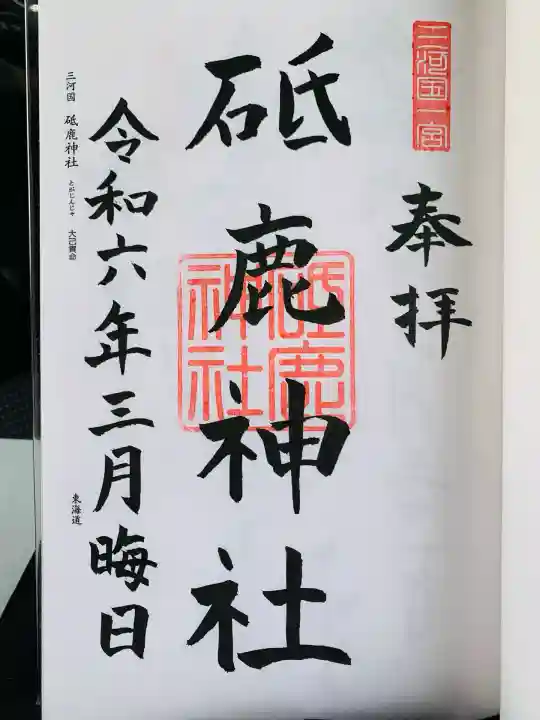 三河国一宮
奉拝
砥鹿神社
砥鹿神社
令和六年三月晦日
三河国 砥鹿神社 とがじんじゃ 大己貴命
東海道